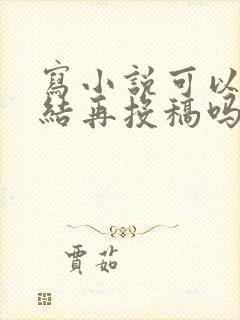 寫小說可以
結再投稿嗎
賈茹